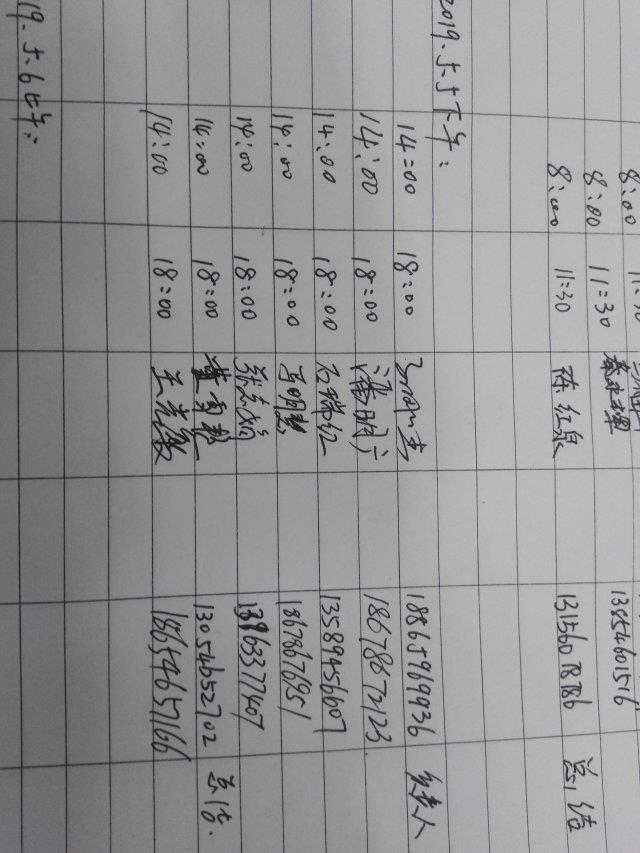 8:00
8:00 11:30 13854601516
8:00 11:30 陈红泉 13156078786 总结
2019.5.5下午:
14:00 18:00 18865969936 负责人
14:00 18:00 潘明广 18678672123
14:00 18:00 石瑞红 13589456607
14:00 18:00 18678676951
14:00 18:00 13963377467
14:00 18:00 13054652702 总结.
14:00 18:00 王光俊 18654657166
19.5.6上午: